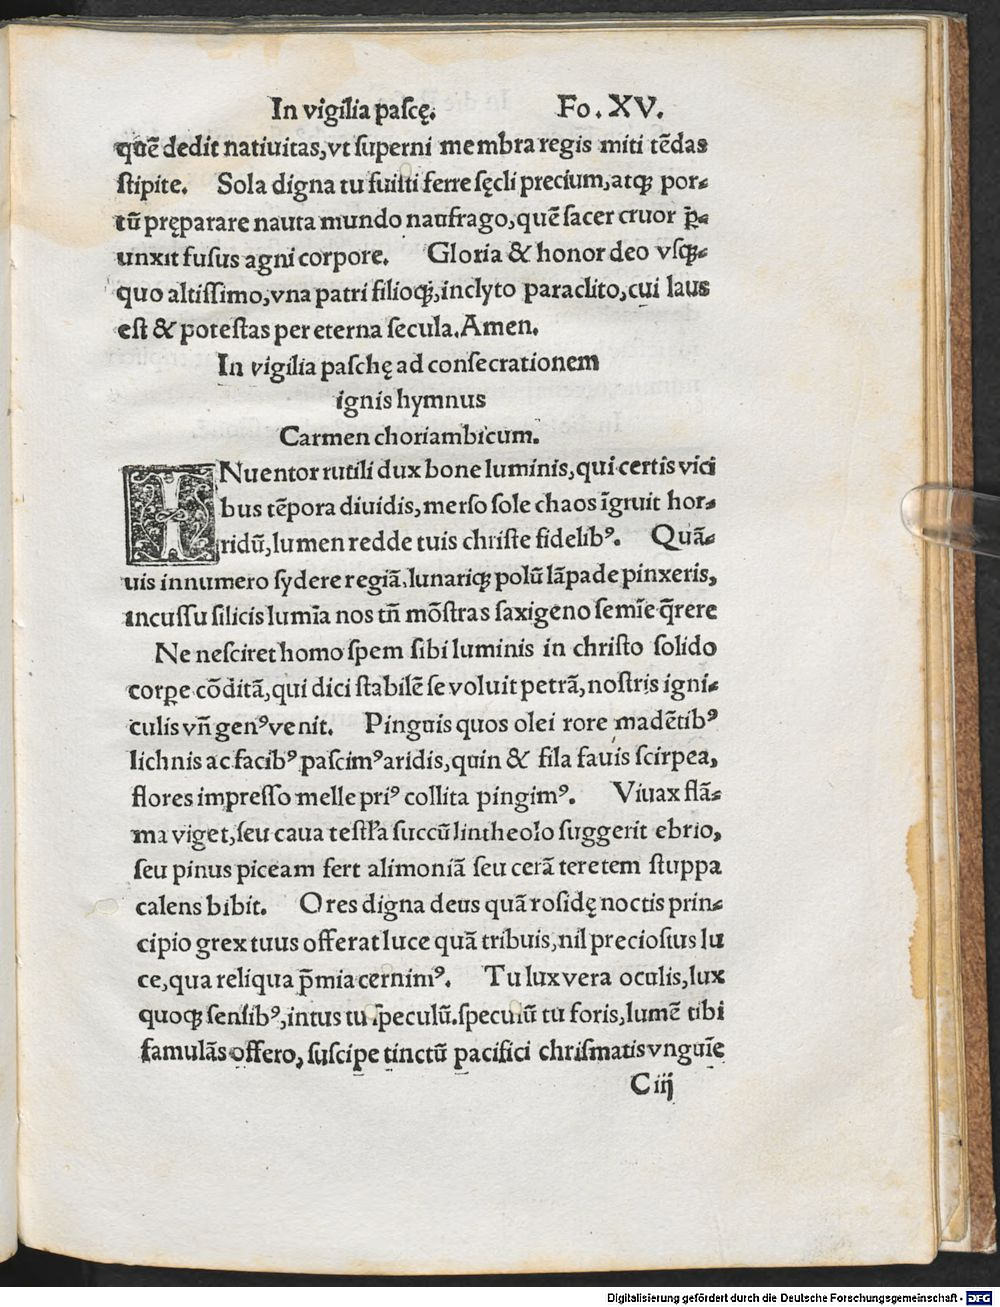 In vigilia paſcę. Fo. XV.
quē dedit natiuitas, vt ſuperni membra regis miti tēdas
ſtipite. Sola digna tu fuiſti ferre ſęcli precium, atqꝫ por⸗
tū pręparare nauta mundo naufrago, quē ſacer cruor p̄⸗
unxit fuſus agni corpore. Gloria & honor deo vſqꝫ⸗
quo altiſſimo, vna patri filioqꝫ, inclyto paraclito, cui laus
eſt & poteſtas per eterna ſecula. Amen.
In vigilia paſchę ad conſecrationem
ignis hymnus
Carmen choriambicum.
INuentor rutili dux bone luminis, qui certis vici
bus tēpora diuidis, merſo ſole chaos īgruit hor⸗
ridū, lumen redde tuis chriſte fidelibꝰ. Quā⸗
uis innumero ſydere regiā. lunariqꝫ polū lāpade pinxeris,
incuſſu ſilicis lumīa nos tn̄ mōſtras ſaxigeno ſemīe q̄rere
Ne neſciret homo ſpem ſibi luminis in chriſto ſolido
corꝑe cōditā, qui dici ſtabilē ſe voluit petrā, noſtris igni⸗
culis vn̄ genꝰ venit. Pinguis quos olei rore madētibꝰ
lichnis ac facibꝰ paſcimꝰ aridis, quin & fila fauis ſcirpea,
flores impreſſo melle priꝰ collita pingimꝰ. Viuax flā⸗
ma viget, ſeu caua teſtl'a ſuccū lintheolo ſuggerit ebrio,
ſeu pinus piceam fert alimoniā ſeu cerā teretem ſtuppa
calens bibit. O res digna deus quā roſidę noctis prin⸗
cipio grex tuus offerat luce quā tribuis, nil precioſius lu
ce, qua reliqua p̄mia cernimꝰ. Tu lux vera oculis, lux
quoqꝫ ſenſibꝰ, intus tu ſpeculū. ſpeculū tu foris, lumē tibi
famulās offero, ſuſcipe tinctū pacifici chriſmatis vnguīe
C iij
Digitalisierung gefördert durch die Deutsche Forschungsgemeinschaft - DFG